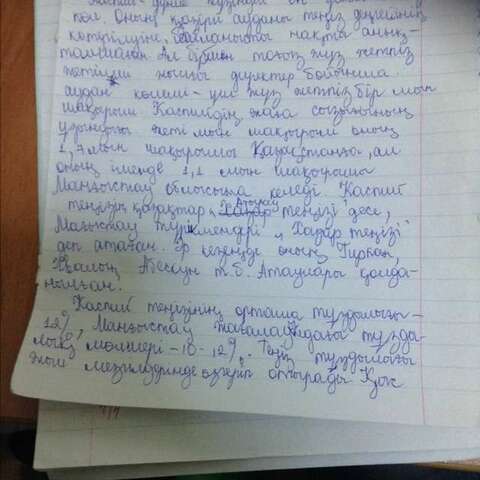 Каспий дүние жүзіндегі ең
көл. Оның қазіргі ауданы теңіз деңгейінің
көтерілуіне байланысты нақты анық-
талмаған Ал бір мың тоғыз жүз жетпіс
жетінші жылғы деректер бойынша
аудан көлемі - үш жүз жетпіс бір мың
шақырым Каспийдің жаға сызығының
ұзындығы жеті мың шақырым оның
1,7 мың шақырымы Қазақстанға, ал
оның ішінде 1,1 мың шақырымы
Маңғыстау облысына келеді. Каспий
теңізін қазақтар "Хазар Атырау теңізі" десе,
Маңғыстау түрікмендері "Хазар теңізі"
деп атаған. Әр кезеңде оның Гиркан,
Хвалын, Абескун т.б. Атаулары қолда-
нылған.
Каспий теңізінің орташа тұздылығы -
12%, Маңғыстау жағалауындағы тұзды-
лық мөлшері - 10-12%. Теңіз тұздылығы
жыл мезгілдерінде өзгеріп отырады Көк